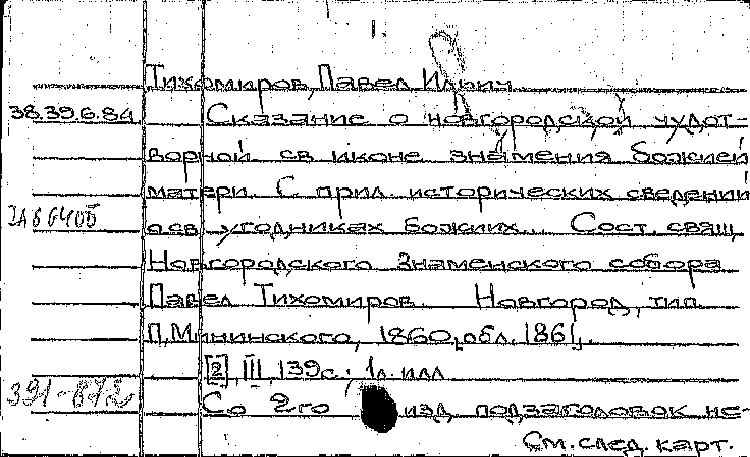 1.
Тихомиров, Павел Ильич
38.39.6.84 Сказание о новгородской чудот-
ворной св иконе знамения божией
матери. С прил. исторических сведений
о св. угодниках божиих... Сост. свящ.
Новгородского Знаменского собора
Павел Тихомиров. Новгород, тип.
П. Мининского, 1860, обл. 1861.
[2], III, 139 с.; 1 л. илл
391-872 Со 2го изд. подзаголовок не-
См. след. карт.